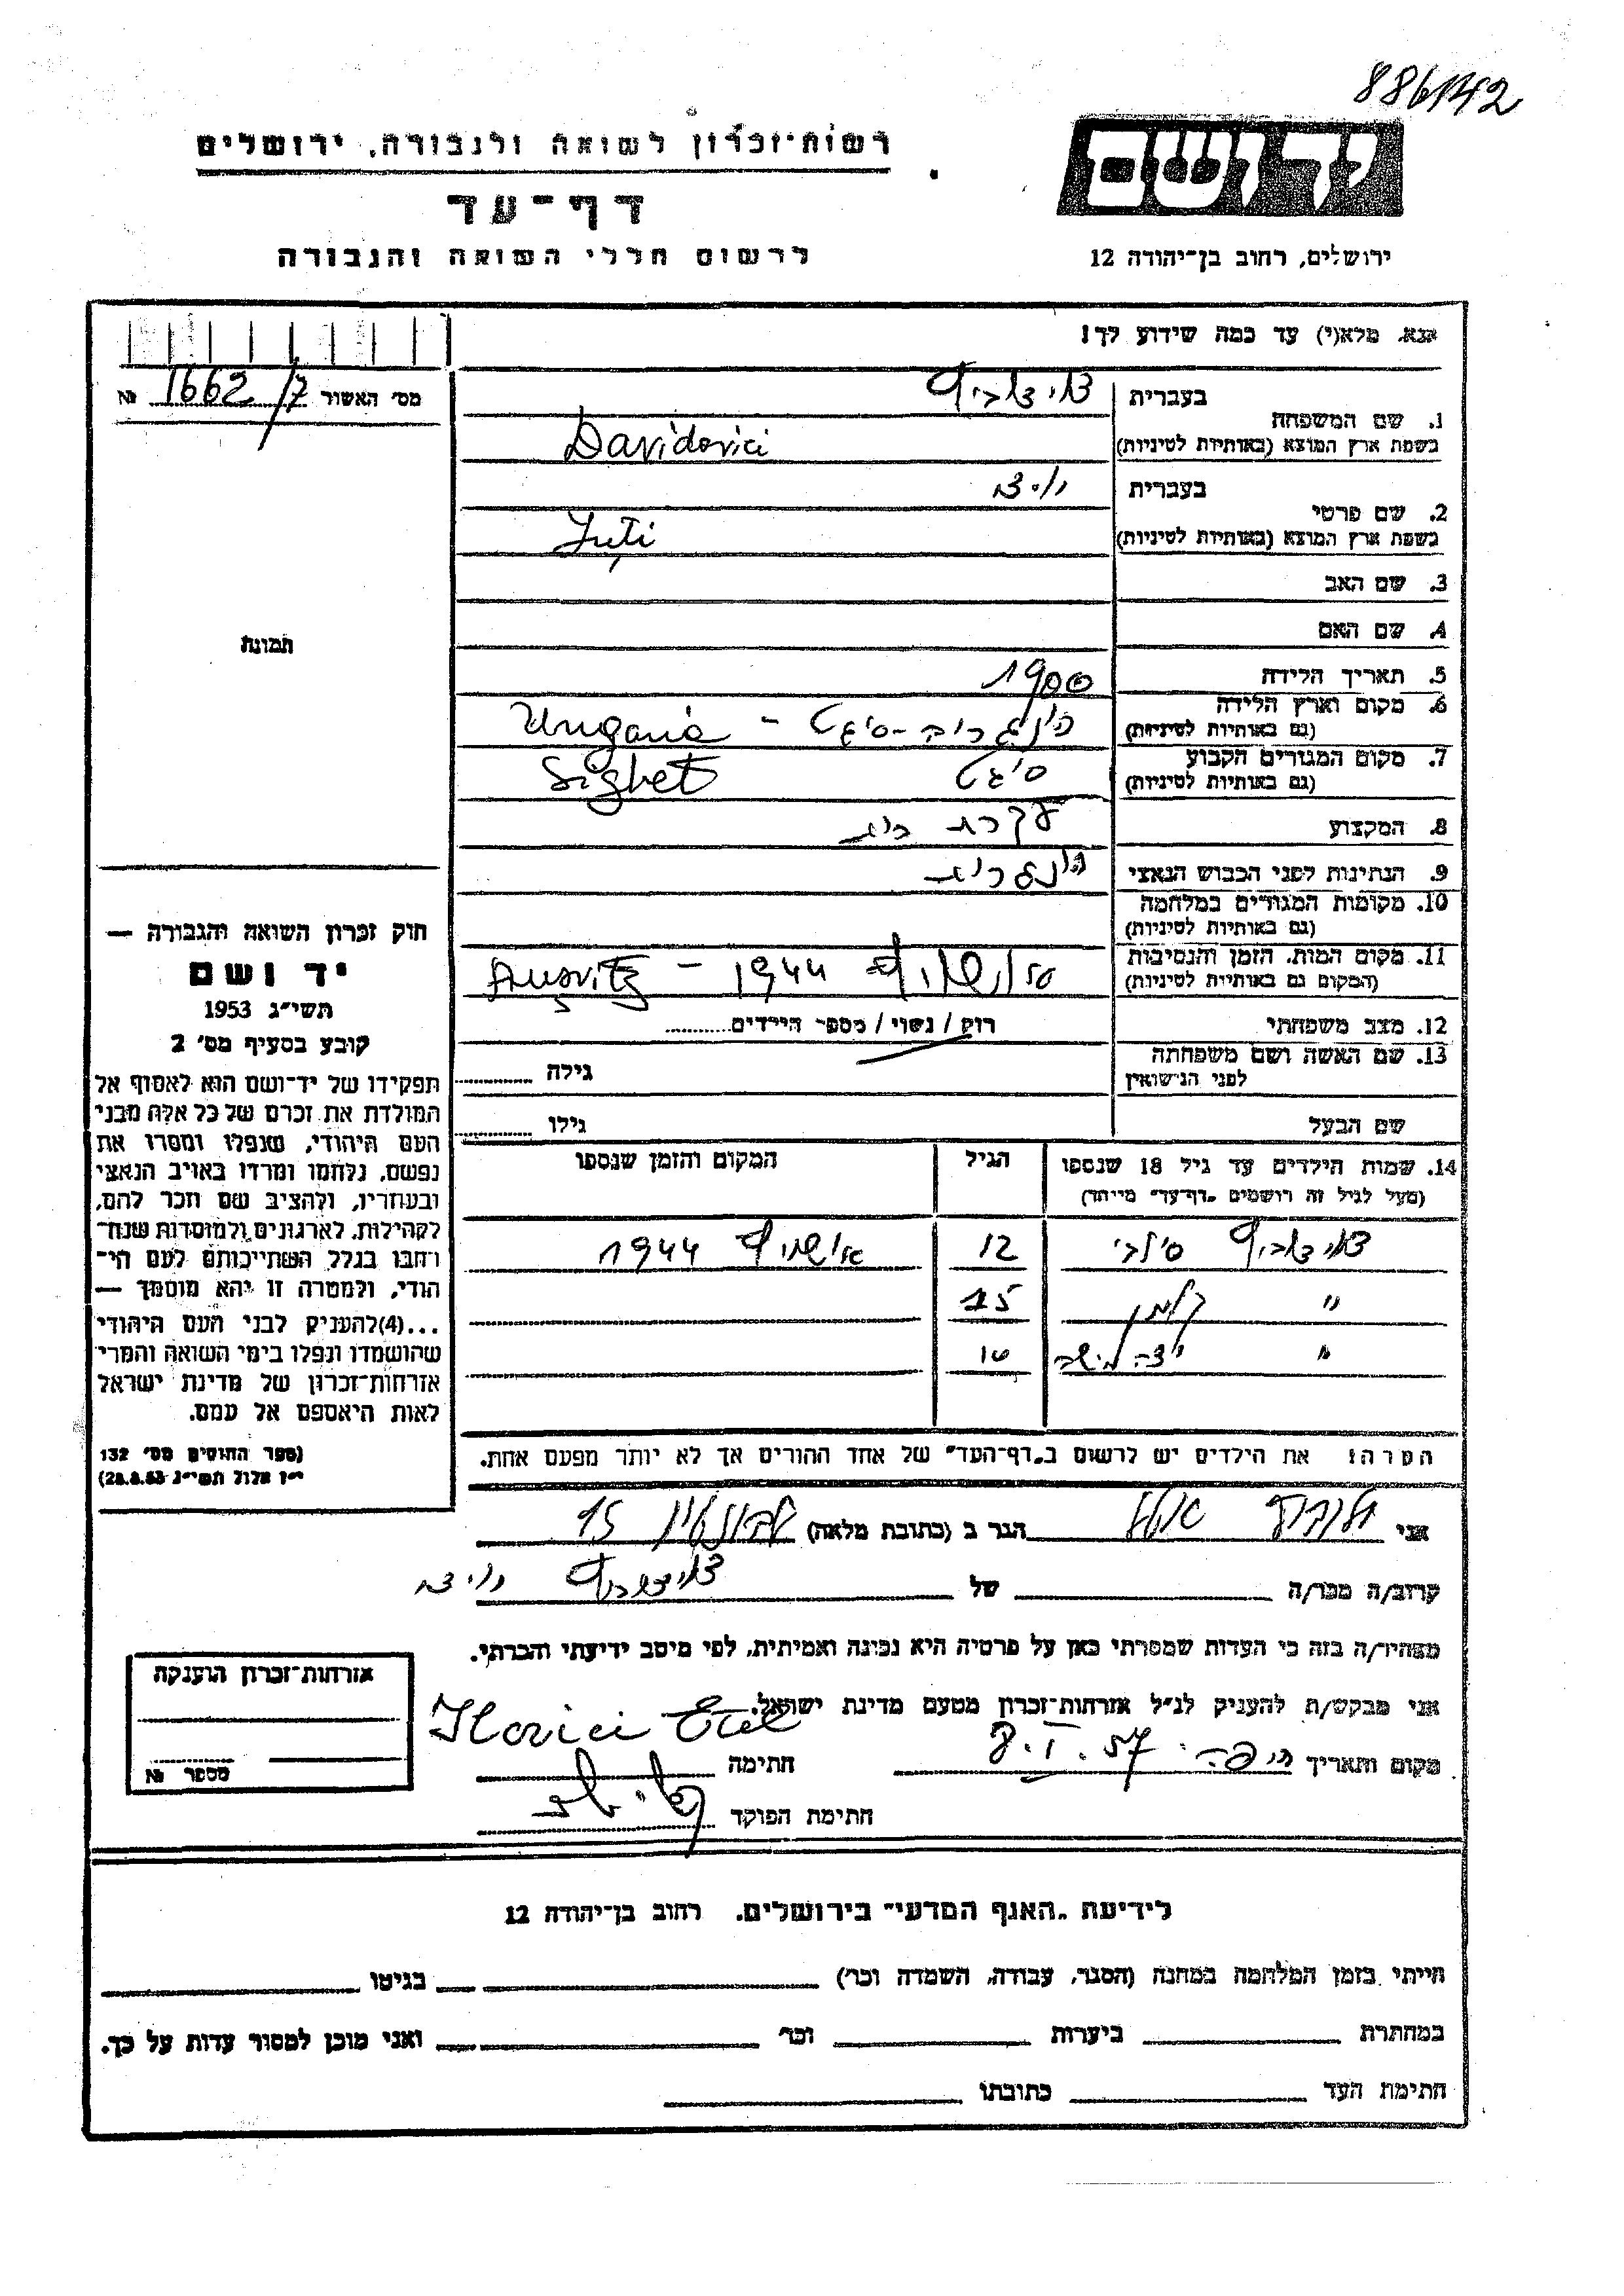 886142
יד ושם
ירושלים, רחוב בן־יהודה 12
רשות־זכרון לשואה ולגבורה, ירושלים
דף־עד
לרשום חללי השואה והגבורה
אנא, מלא(י) עד כמה שידוע לך!
מס׳ האשור 1662/7 №
תמונה
1. שם המשפחה
בעברית דוידוביץ
בשפת ארץ המוצא (באותיות לטיניות) Davidovici
2. שם פרטי
בעברית
בשפת ארץ המוצא (באותיות לטיניות) Juți
3. שם האב
4. שם האם
5. תאריך הלידה 1900
6. מקום וארץ הלידה
(גם באותיות לטיניות) הונגריה - סיגט - Ungaria
7. מקום המגורים הקבוע
(גם באותיות לטיניות) סיגט Sighet
8. המקצוע עקרת בית
9. הנתינות לפני הכבוש הנאצי הונגרית
10. מקומות המגורים במלחמה
(גם באותיות לטיניות)
11. מקום המות, הזמן והנסיבות
(המקום גם באותיות לטיניות) 1944 - Ausvitz
12. מצב משפחתי רווק / נשוי / מספר הילדים
13. שם האשה ושם משפחתה
לפני הנישואין גילה
שם הבעל גילו
14. שמות הילדים עד גיל 18 שנספו
(מעל לגיל זה רושמים „דף־עד״ מיוחד)
הגיל
המקום והזמן שנספו
דוידוביץ סילבי 12 אושויץ 1944
״ קלמן 15
״ 10
הערה: את הילדים יש לרשום ב„דף־העד״ של אחד ההורים אך לא יותר מפעם אחת.
חוק זכרון השואה והגבורה —
יד ושם
תשי״ג 1953
קובע בסעיף מס׳ 2
תפקידו של יד־ושם הוא לאסוף אל
המולדת את זכרם של כל אלה מבני
העם היהודי, שנפלו ומסרו את
נפשם, נלחמו ומרדו באויב הנאצי
ובעוזריו, ולהציב שם וזכר להם,
לקהילות, לארגונים ולמוסדות שנח־
רבו בגלל השתייכותם לעם הי־
הודי, ולמטרה זו יהא מוסמך —
...(4) להעניק לבני העם היהודי
שהושמדו ונפלו בימי השואה והמרי
אזרחות־זכרון של מדינת ישראל
לאות היאספם אל עמם.
(ספר החוקים מס׳ 132
י״ז אלול תשי״ג 28.8.53)
אני הגר ב (כתובת מלאה) 15
קרוב/ה מכר/ה של דוידוביץ
מצהיר/ה בזה כי העדות שמסרתי כאן על פרטיה היא נכונה ואמיתית, לפי מיטב ידיעתי והכרתי.
אני מבקש/ת להעניק לנ״ל אזרחות־זכרון מטעם מדינת ישראל.
מקום ותאריך חיפה. 8.I.57 חתימה Ilovici Etel
חתימת הפוקד
אזרחות־זכרון הוענקה
מספר №
לידיעת „האגף המדעי״ בירושלים, רחוב בן־יהודה 12
הייתי בזמן המלחמה במחנה (הסגר, עבודה, השמדה וכו׳) בגיטו
במחתרת ביערות וכו׳ ואני מוכן למסור עדות על כך.
חתימת העד כתובתו